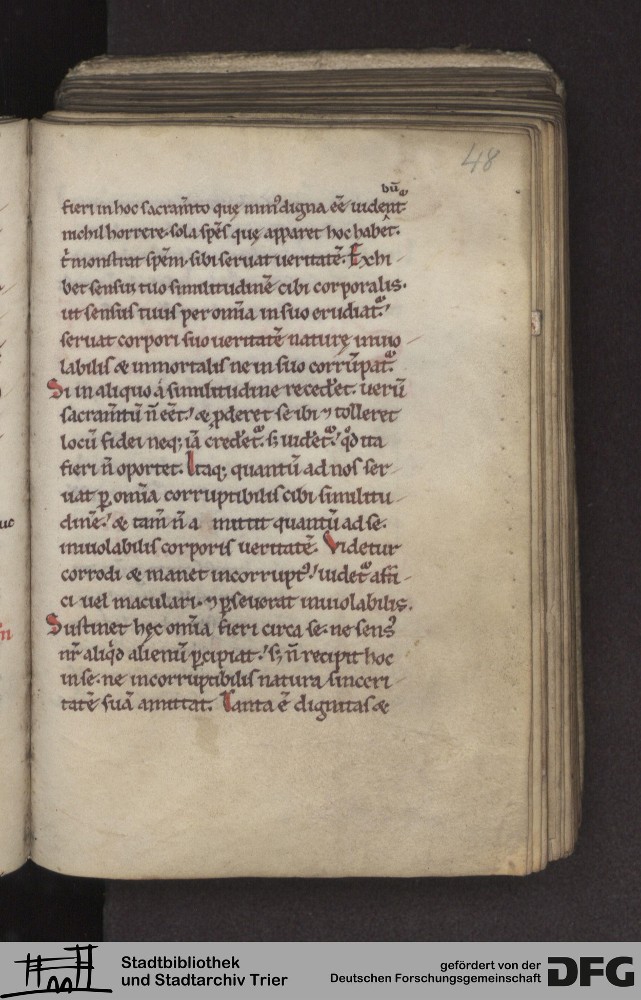 48
bū
fieri in hoc sacram̄to que min᷒ digna eē uident
nichil horrere. sola spēs que apparet hoc habēt.
t̄ monstrat spēm. sibi seruat ueritatē. Exhi-
bet sensui tuo similitudinē cibi corporalis.
ut sensus tuus per om̄ia in suo erudiat᷒.
seruat corpori suo ueritatē naturę inuio-
labilis & inmortalis ne in suo corrūpat᷒.
Si in aliquo a similitudine recederet. uerū
sacram̄tū n̄ eēt. & ꝓderet se ibi ⁊ tolleret
locū fidei neq; iā crederet᷒. s; uideret᷒. qd̄ ita
fieri n̄ oportet. Itaq; quantū ad nos ser-
uat ꝑ om̄ia corruptibilis cibi similitu-
dinē. & tam̄ n̄ a mittit quantū ad se.
inuiolabilis corporis ueritatē. Videtur
corrodi & manet incorrupt᷒. uidet᷒ affi-
ci uel maculari. ⁊ ꝑseuerat inuiolabilis.
Sustinet hęc om̄ia fieri circa se. ne sens᷒
nr̄ aliqd̄ alienū ꝑcipiat. s; n̄ recipit hoc
in se. ne incorruptibilis natura sinceri-
tatē suā amittat. Tanta ē dignitas &
uc
n
Stadtbibliothek
und Stadtarchiv Trier
gefördert von der
Deutschen Forschungsgemeinschaft
DFG